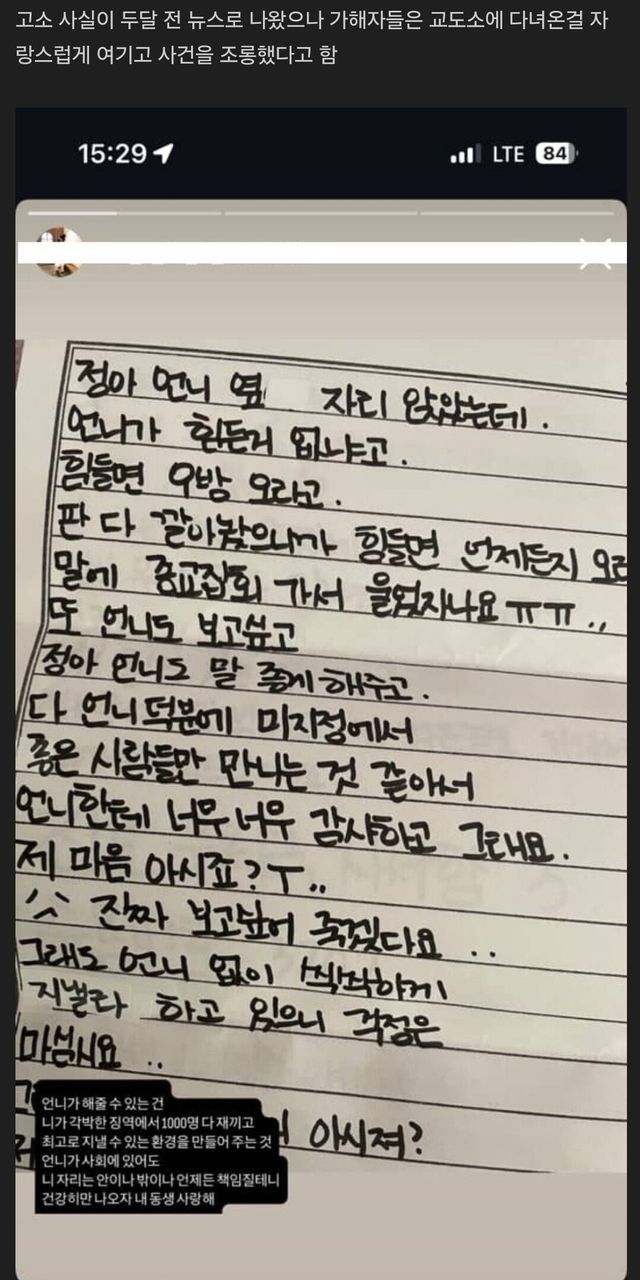 고소 사실이 두달 전 뉴스로 나왔으나 가해자들은 교도소에 다녀온걸 자
랑스럽게 여기고 사건을 조롱했다고 함
15:29
LTE 84
정아 언니 옆 자리 앉았는데.
언니가 힘든거 없냐고.
힘들면 9방 오라고.
판 다 깔아놨으니까 힘들면 언제든지 오라
말에 종교집회 가서 울었자나요 ㅠㅠ..
또 언니도 보고싶고
정아 언니도 말 좋게 해주고.
다 언니덕분에 미지정에서
좋은 사람들만 만나는 것 같아서
언니한테 너무너무 감사하고 그래요.
제 마음 아시죠?ㅜ..
진짜 보고싶어 죽겠다요 ..
그래도 언니 없이 씩씩하게
지낼라 하고 있으니 걱정은
마셤시요 ..
아시져?
언니가 해줄 수 있는 건
니가 각박한 징역에서 1000명 다 재끼고
최고로 지낼 수 있는 환경을 만들어 주는 것
언니가 사회에 있어도
니 자리는 안이나 밖이나 언제든 책임질테니
건강히만 나오자 내 동생 사랑해